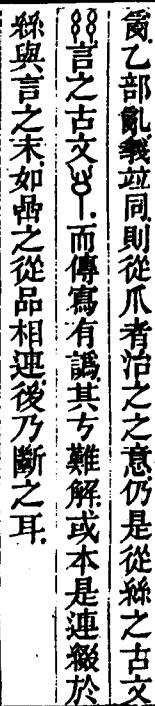 𤔔乙部亂義竝同則從爪者治之之意仍是從絲之古文
𢆶言之古文𠱫而傳寫有譌其丂難解或本是連綴於
絲與言之末如喦之從品相連後乃斷之耳